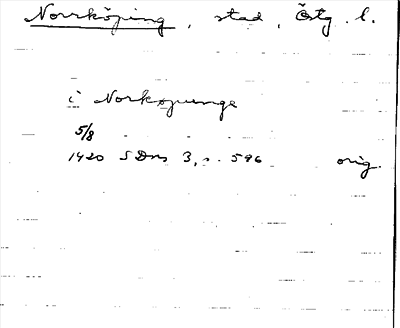 Norrköping, stad, Östg. l.
i Norkøpunge
5/8
1420 SDns 3, s. 596 orig.